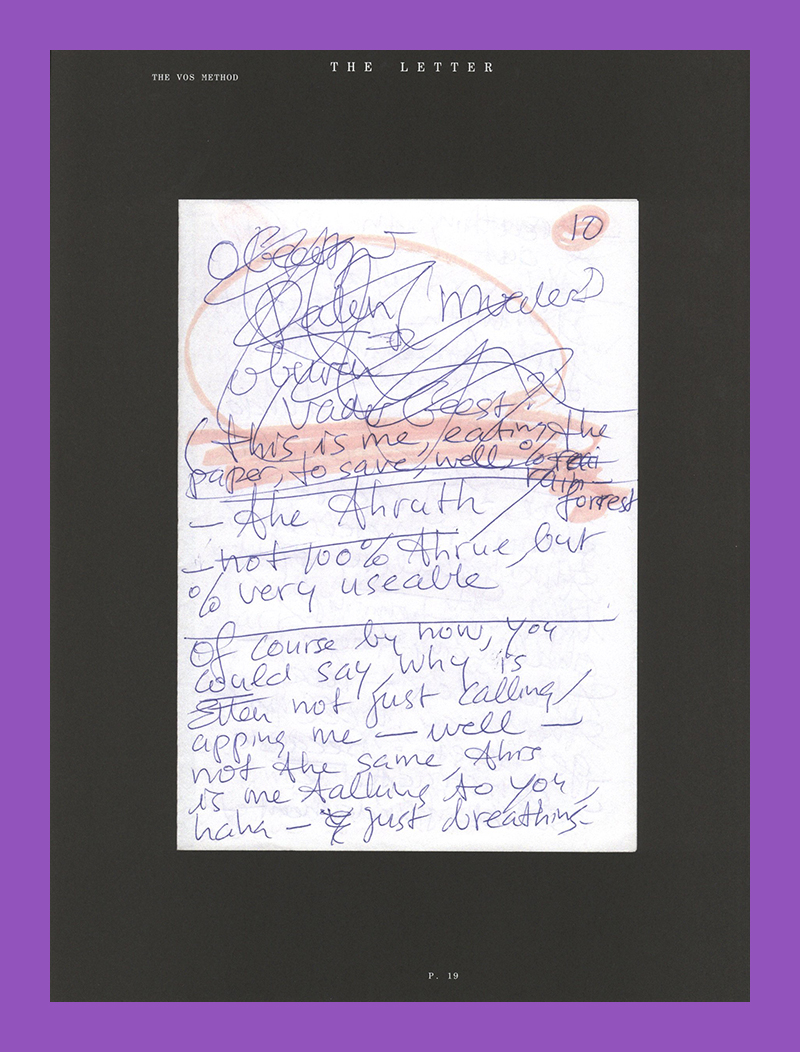 THE LETTER
THE VOS METHOD
10
(this is me, eating the
paper, to save, well, %
rain-
forrest
- the Thruth
- not 100% thrue, but
% very useable
Of course by now, you
could say, why is
Ellen not just calling/
apping me - well -
not the same, this
is me talking to you,
haha - just breathing-
P. 19